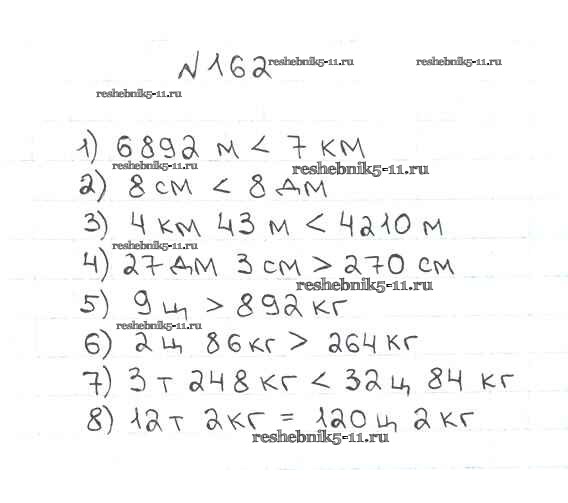 №162 reshebnik5-11.ru reshebnik5-11.ru
reshebnik5-11.ru
1) 6892 м < 7 км
reshebnik5-11.ru reshebnik5-11.ru
2) 8 см < 8 дм
3) 4 км 43 м < 4210 м
reshebnik5-11.ru
4) 27 дм 3 см > 270 см
reshebnik5-11.ru
5) 9 ц > 892 кг
reshebnik5-11.ru
6) 2 ц 86 кг > 264 кг
7) 3 т 248 кг < 32 ц 84 кг
8) 12 т 2 кг = 120 ц 2 кг
reshebnik5-11.ru